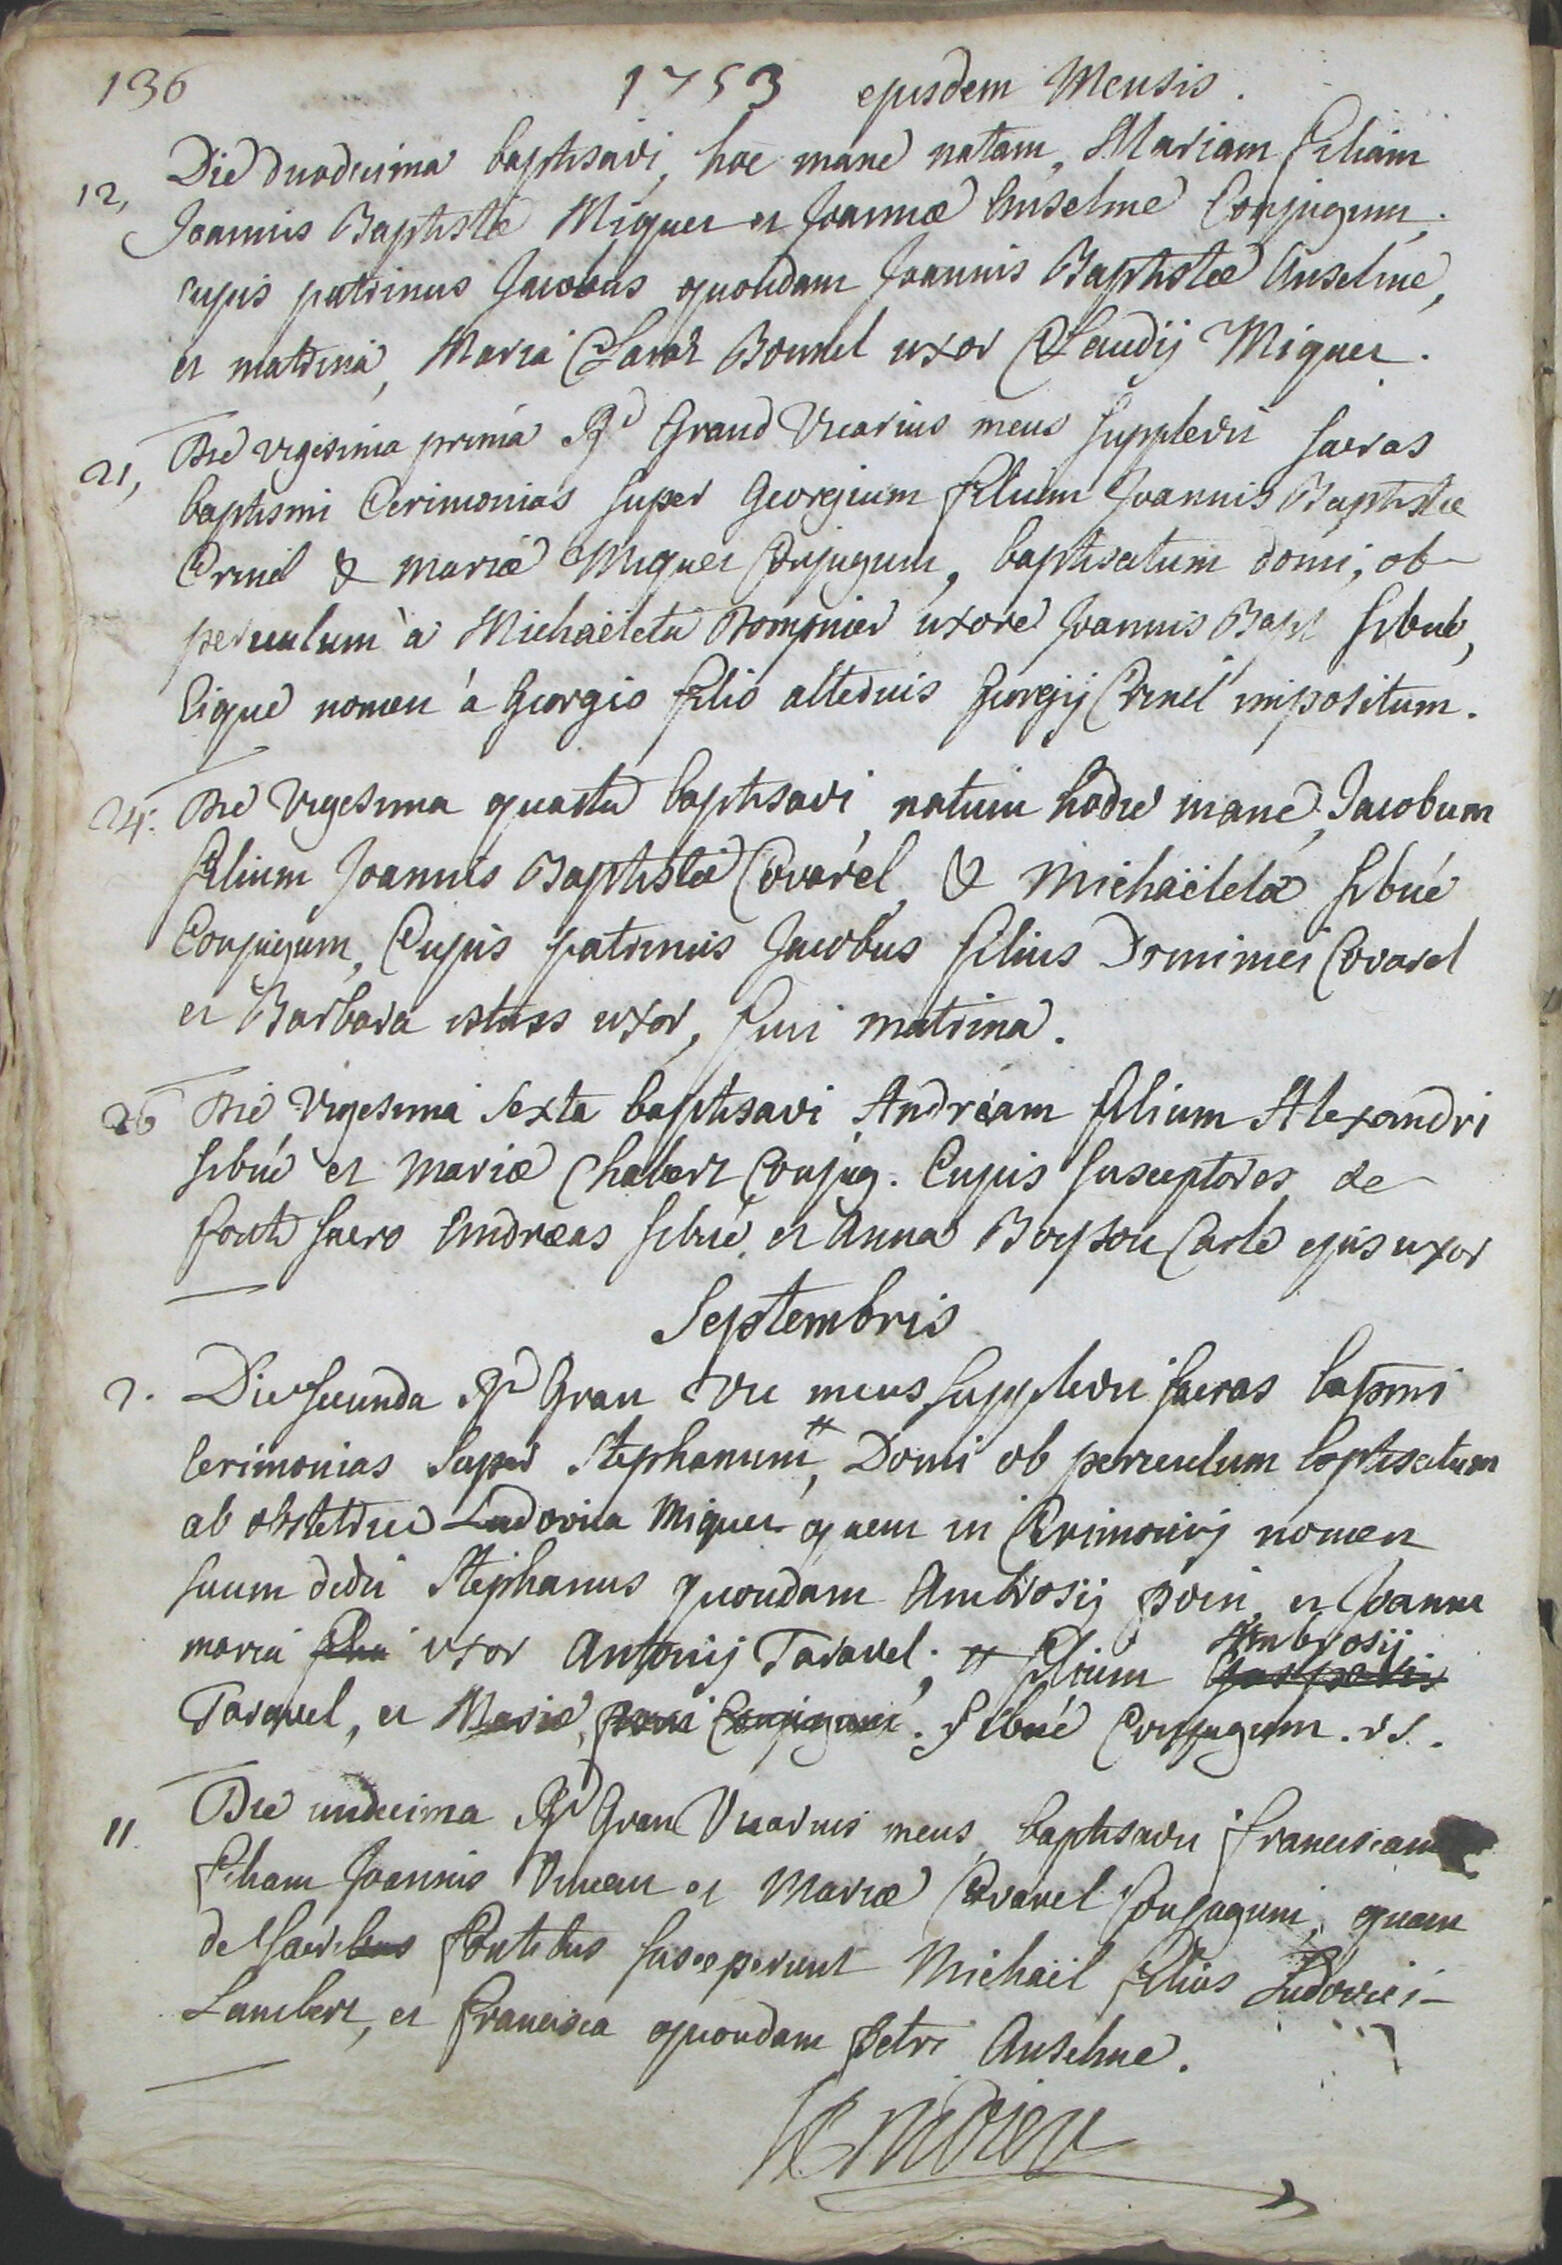 136 1753 ejusdem Mensis.
12, Die duodecima baptisavi, hoc mane natam, Mariam filiam
Joannis Baptistæ Miquet et Joannæ Anselme Conjugum,
cujus patrinus Jacobus quondam Joannis Baptistæ Anselme,
et matrina, Maria Clara Bonnel uxor Claudij Miquet.
21, Die vigesima prima Rd Grand Vicarius meus supplevit sacras
baptismi Cerimonias super Georgium filium Joannis Baptistæ
Crinel & mariæ Miquet Conjugum, baptisatum domi, ob
periculum à Michaëleta Rompnier uxore Joannis Bapt Sibué,
eique nomen à Georgio filio alterius Georgij Crinel impositum.
24. Die vigesima quarta baptisavi, natum hodie mane, Jacobum
filium Joannis Baptistæ Covarel, & Michaëletæ Sibué
Conjugum, Cujus patrinus Jacobus filius Dominici Covarel
et Barbara uxor, fuit matrina.
26 Die vigesima sexta baptisavi Andream filium Alexandri
Sibué et Mariæ Chabert Conjug. Cujus susceptores de
fonte sacro Andreas Sibué, et Anna Boysson Carle ejus uxor
Septembris
2. Die secunda Rd Gran Vic meus supplevit sacras bapmi
Cerimonias super Stephanum #, Domi ob periculum baptisatum
ab obstetrice Ludovica Miquet quem in Cerimonijs nomen
suum dedit Stephanus quondam Ambrosij et Joanna
maria filia uxor Antonij Taravel; # filium Gasparis Ambrosij
Taravel, et Mariæ, Conjugum. Sibué Conjugum.
11. Die undecima Rd Gran Vicarius meus, baptisavit franciscam
filiam Joannis Vincen et Mariæ Covarel Conjugum, quam
de sacribus fontibus susceperunt Michaël filius Ludovici
Lambert, et francisca quondam petri Anselme.